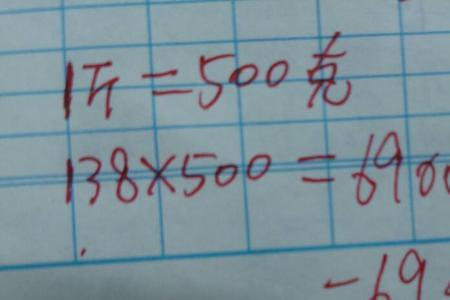 1斤=500克
138×500=690
-69